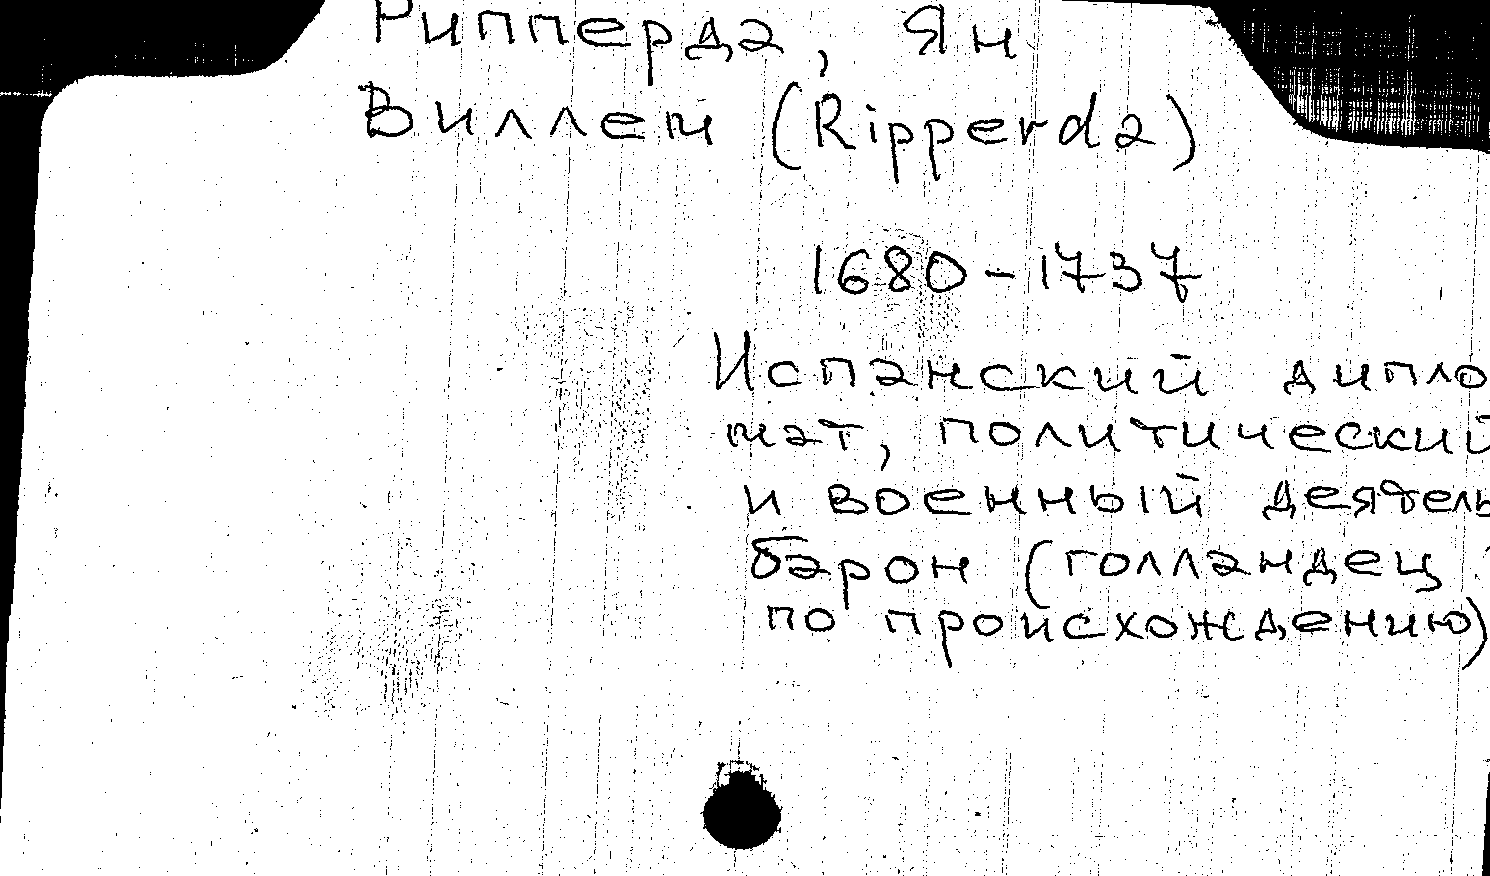 Рипперда, Ян
Виллем (Ripperda)
1680-1737
Испанский дипло
мат, политический
и военный деятель
барон (голландец
по происхождению)